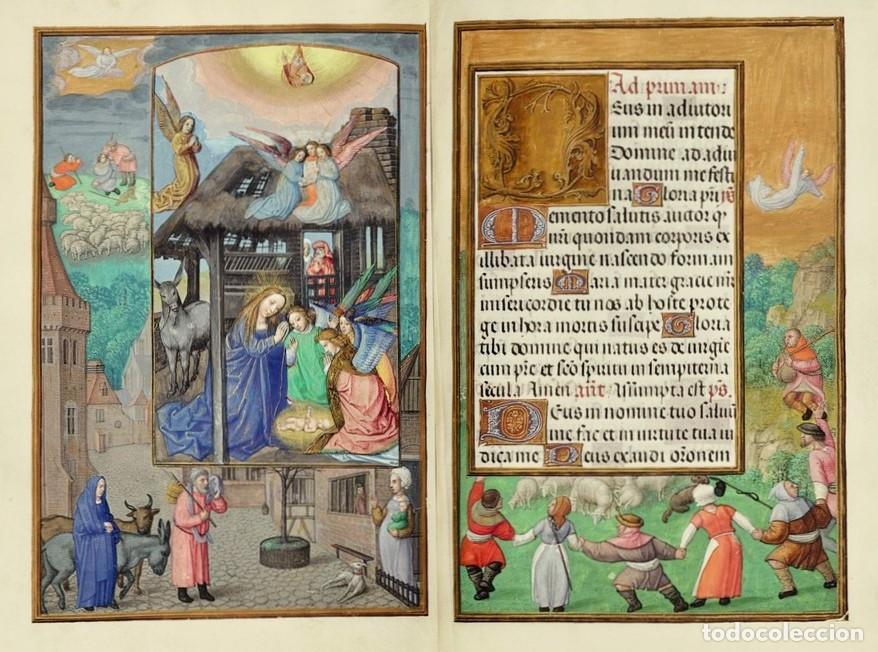 Ad primam:
Deus in adiutori
um meū intende
Domine ad adiu
uandum me festi
na Gloria pr̄i
Memento salutis auctor q
ꝙ nr̄i quondam corporis ex
illibata uirgine nascendo formam
sumpseris Maria mater gracie m̄r
misericordie tu nos ab hoste prote
ge in hora mortis suscipe Gloria
tibi domine qui natus es de uirgīe
cum p̄re et sc̄o spiritu in sempiterna
secula Amen añt Assumpta est p̄s
Deus in nomine tuo saluū
me fac et in uirtute tua iu
dica me Deus exaudi or̄onem
todocoleccion